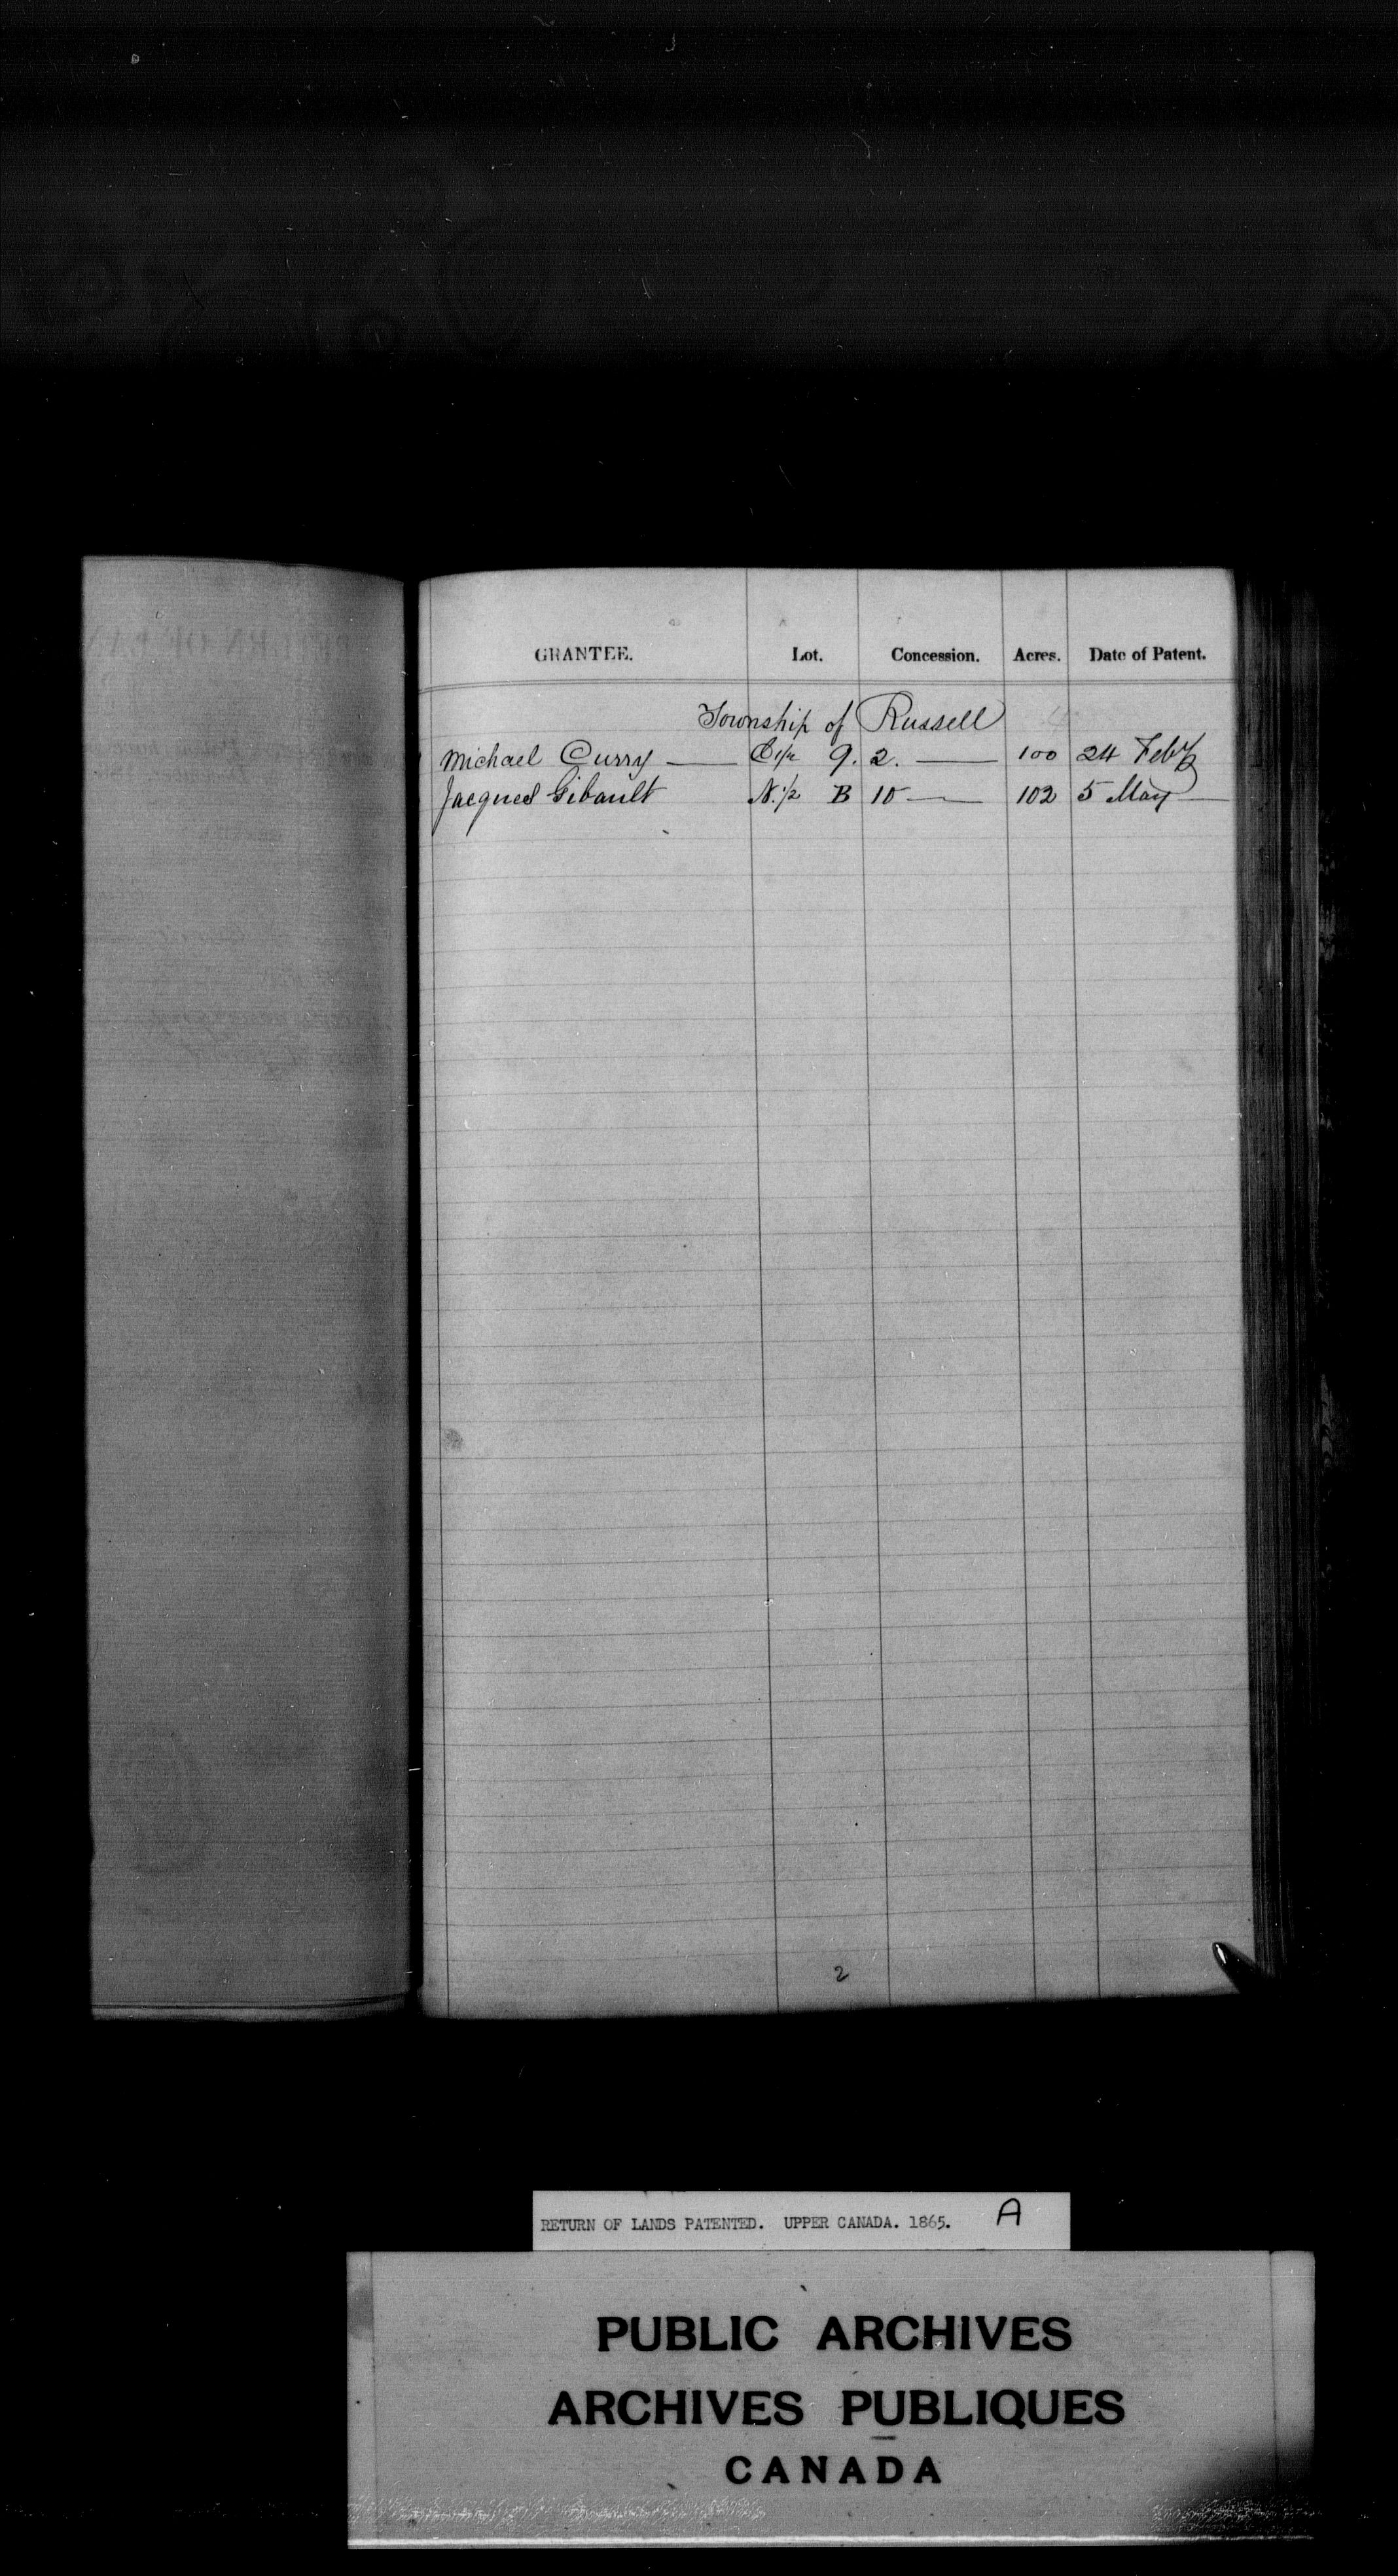 GRANTEE. Lot. Concession. Acres. Date of Patent.
Township of Russell
Michael Curry — E 1/2 9. 2. — 100 24 Feby
Jacques Gibault N. 1/2 B 10 — 102 5 May —
2
RETURN OF LANDS PATENTED. UPPER CANADA. 1865. A
PUBLIC ARCHIVES
ARCHIVES PUBLIQUES
CANADA